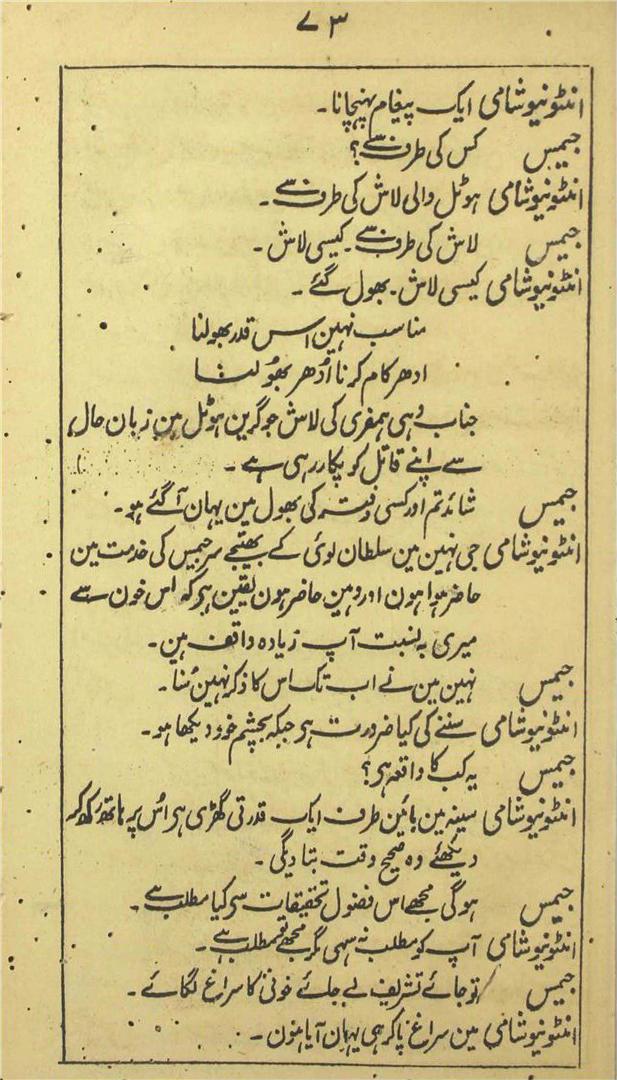 ۷۳
انٹونیوشامی ایک پیغام پہنچانا۔
جیمس کس کی طرف سے؟
انٹونیوشامی ہوٹل والی لاش کی طرف سے۔
جیمس لاش کی طرف سے۔ کیسی لاش۔
انٹونیوشامی کیسی لاش۔ بھول گئے۔
مناسب نہین اس قدر بھولنا
ادھر کام کرنا اُدھر بھولنا
جناب وہی ہمفری کی لاش جو گرین ہوٹل مین زبان حال
سے اپنے قاتل کو پکار رہی ہے۔
جیمس شائد تم اور کسی وقت کی بھول مین یہان آ گئے ہو۔
انٹونیوشامی جی نہین مین سلطان لوئی کے بھتیجے سر جیمس کی خدمت مین
حاضر ہوا ہون اور وہین حاضر ہون یقین ہر کہ اس خون سے
میری بہ نسبت آپ زیادہ واقف ہین۔
جیمس نہین مین نے اب تک اس کا ذکر نہین سُنا۔
انٹونیوشامی سننے کی کیا ضرورت ہر جبکہ بچشم خود دیکھا ہو۔
جیمس یہ کب کا واقعہ ہر؟
انٹونیوشامی سینہ مین بائین طرف ایک قدرتی گھڑی ہر اُس پر ہاتھ رکھ کر
دیکھئے وہ صحیح وقت بتا دیگی۔
جیمس ہوگی مجھے اس فضول تحقیقات سی کیا مطلب ہے۔
انٹونیوشامی آپ کو مطلب نہ سہی مگر مجھے تو مطلب ہے۔
جیمس تو جائے تشریف لے جائے خونی کا سراغ لگائے۔
انٹونیوشامی مین سراغ پا کر ہی یہان آیا ہون۔